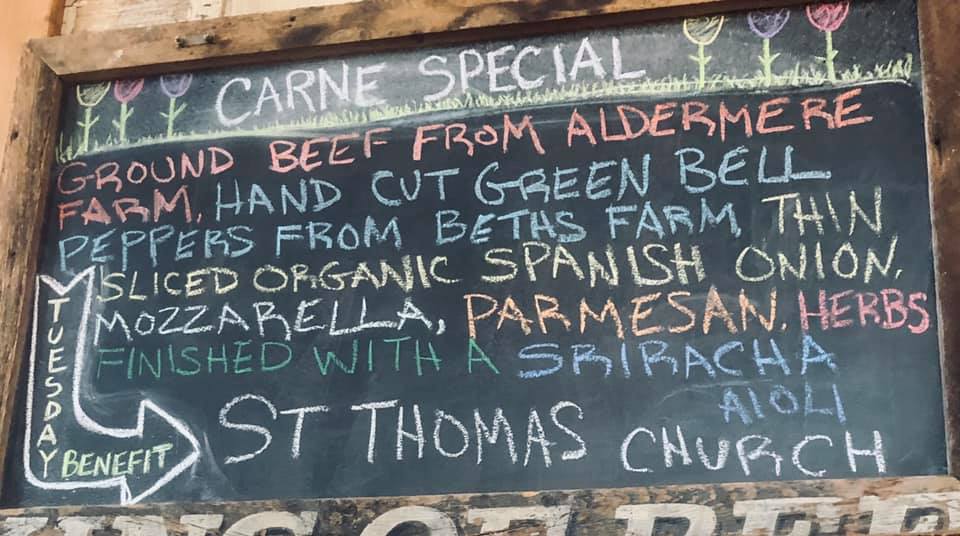 CARNE SPECIAL
GROUND BEEF FROM ALDERMERE
FARM, HAND CUT GREEN BELL
PEPPERS FROM BETHS FARM, THIN
SLICED ORGANIC SPANISH ONION,
MOZZARELLA, PARMESAN, HERBS
FINISHED WITH A SRIRACHA
AIOLI
TUESDAY
BENEFIT
ST THOMAS CHURCH